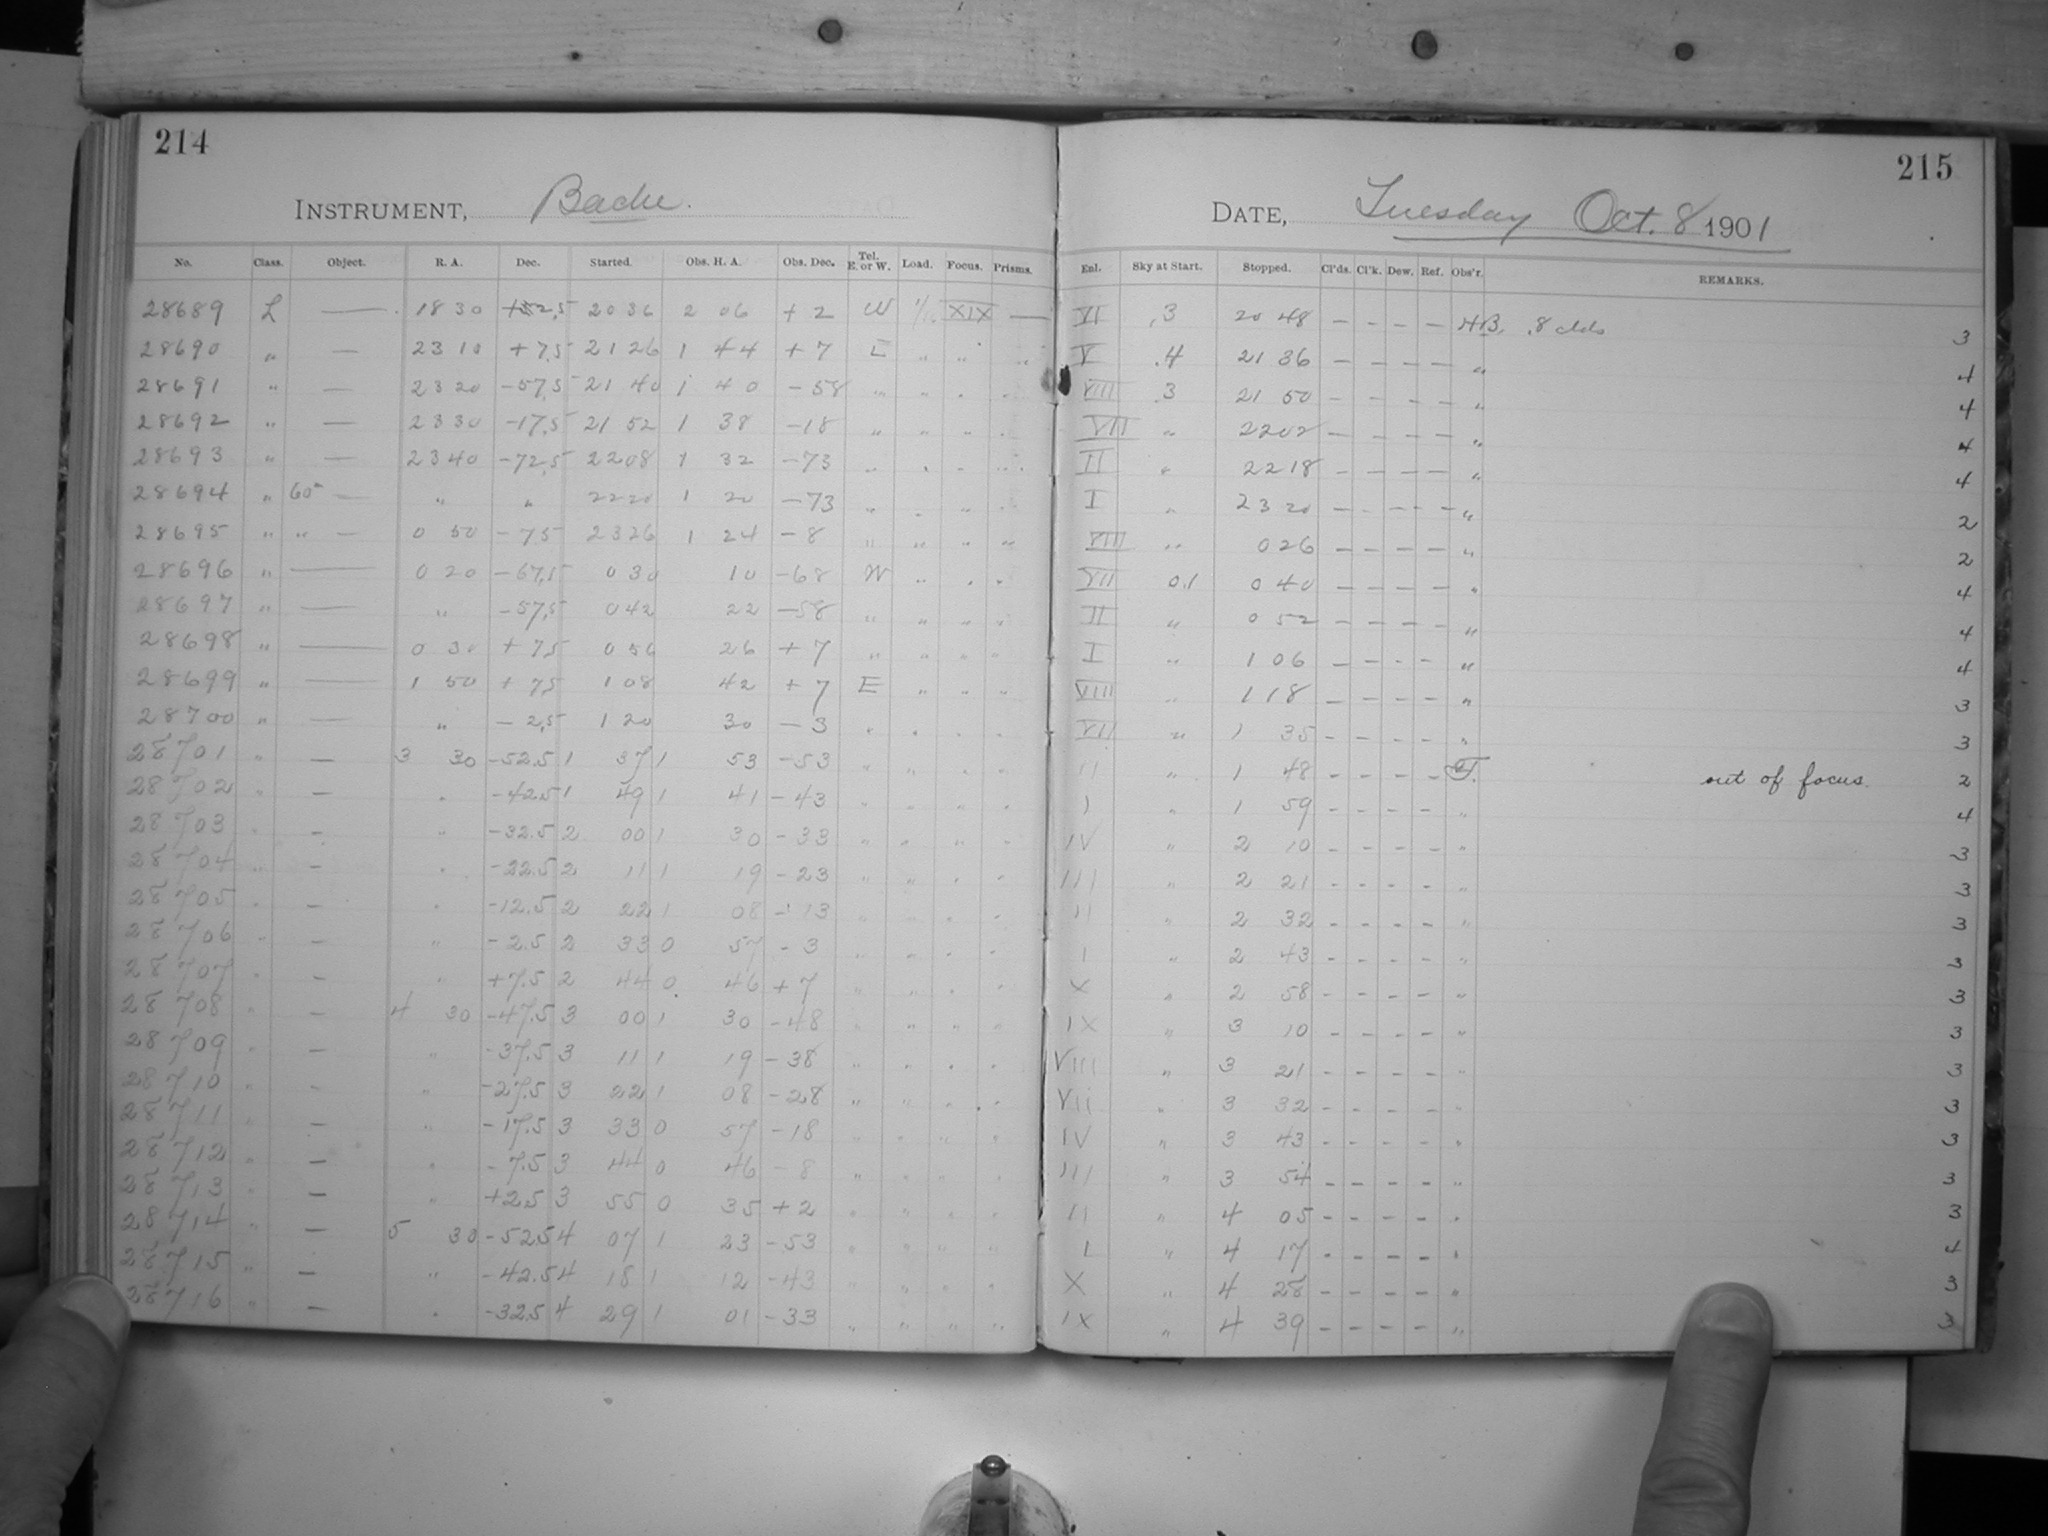 214
INSTRUMENT, Bache.
No. Class. Object. R. A. Dec. Started. Obs. H. A. Obs. Dec. Tel. E. or W. Load. Focus. Prisms.
28689 L — 18 30 20 36 2 06 + 2 W XIX —
28690 " — 23 10 + 7.5 21 26 1 44 + 7 E " " "
28691 " — 23 20 -57.5 21 40 1 40 -58 " " " "
28692 " — 23 30 -17.5 21 52 1 38 -18 " " " "
28693 " — 23 40 -72.5 22 08 1 32 -73 " " " "
28694 " 60m — " " 22 20 1 20 -73 " " " "
28695 " " — 0 50 - 7.5 23 26 1 24 - 8 " " " "
28696 " — 0 20 -67.5 0 30 10 -68 W " " "
28697 " — " -57.5 0 42 22 -58 " " " "
28698 " — 0 30 + 7.5 0 56 26 + 7 " " " "
28699 " — 1 50 + 7.5 1 08 42 + 7 E " " "
28700 " — " - 2.5 1 20 30 - 3 " " " "
28701 " — 3 30 -52.5 1 37 1 53 -53 " " " "
28702 " — " -42.5 1 49 1 41 -43 " " " "
28703 " — " -32.5 2 00 1 30 -33 " " " "
28704 " — " -22.5 2 11 1 19 -23 " " " "
28705 " — " -12.5 2 22 1 08 -13 " " " "
28706 " — " -2.5 2 33 0 57 - 3 " " " "
28707 " — " +7.5 2 44 0 46 + 7 " " " "
28708 " — 4 30 -47.5 3 00 1 30 -48 " " " "
28709 " — " -37.5 3 11 1 19 -38 " " " "
28710 " — " -27.5 3 22 1 08 -28 " " " "
28711 " — " -17.5 3 33 0 57 -18 " " " "
28712 " — " -7.5 3 44 0 46 - 8 " " " "
28713 " — " +2.5 3 55 0 35 + 2 " " " "
28714 " — 5 30 -52.5 4 07 1 23 -53 " " " "
28715 " — " -42.5 4 18 1 12 -43 " " " "
28716 " — " -32.5 4 29 1 01 -33 " " " "
215
DATE, Tuesday Oct. 8 1901
Enl. Sky at Start. Stopped. Cl'ds. Cl'k. Dew. Ref. Obs'r. REMARKS.
VI .3 20 48 — — — — HB. .8 clds 3
V .4 21 36 — — — — " 4
VIII .3 21 50 — — — — " 4
VII " 22 02 — — — — " 4
II " 22 18 — — — — " 4
I " 23 20 — — — — " 2
VIII " 0 26 — — — — " 2
VII 0.1 0 40 — — — — " 4
II " 0 52 — — — — " 4
I " 1 06 — — — — " 4
VIII " 1 18 — — — — " 3
VII " 1 35 — — — — " 3
II " 1 48 — — — — out of focus. 2
I " 1 59 — — — — " 4
IV " 2 10 — — — — " 3
III " 2 21 — — — — " 3
II " 2 32 — — — — " 3
I " 2 43 — — — — " 3
X " 2 58 — — — — " 3
IX " 3 10 — — — — " 3
VIII " 3 21 — — — — " 3
VII " 3 32 — — — — " 3
IV " 3 43 — — — — " 3
III " 3 54 — — — — " 3
II " 4 05 — — — — " 3
I " 4 17 — — — — " 4
X " 4 28 — — — — " 3
IX " 4 39 — — — — " 3